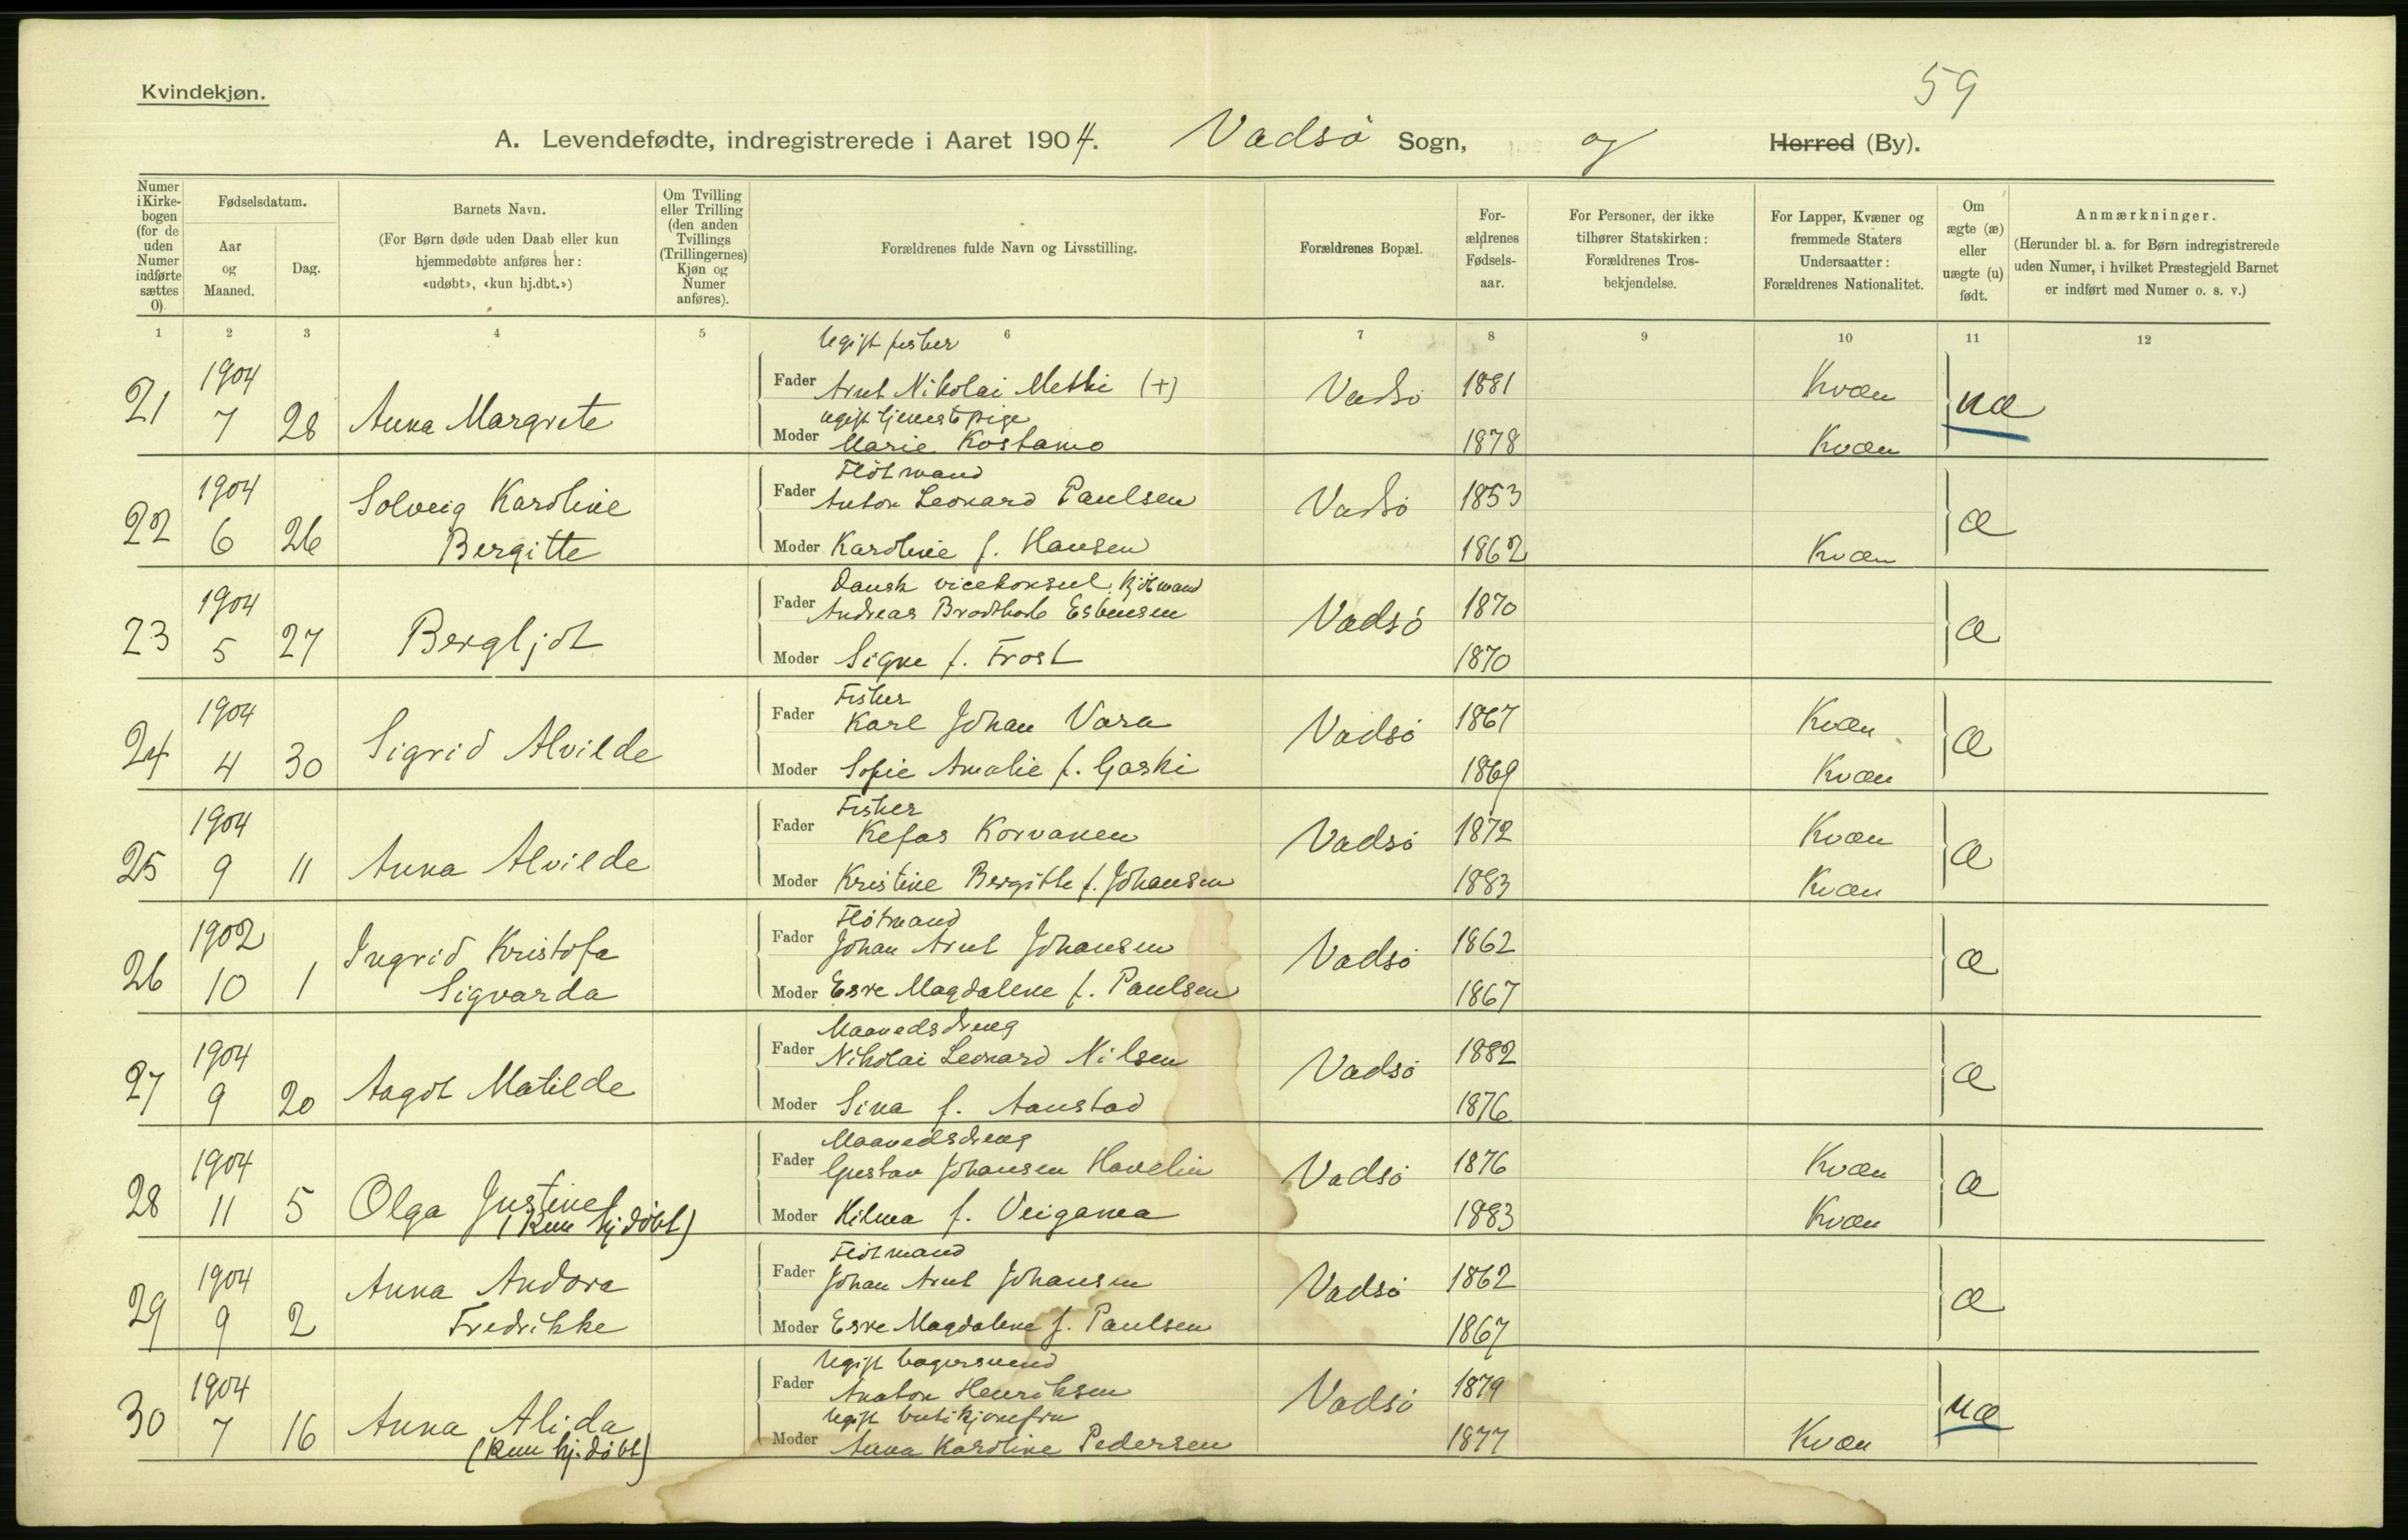 59
Kvindekjøn.
A. Levendefødte, indregistrerede i Aaret 1904. Vadsø Sogn, og Herred (By).
Numer i Kirke-bogen (for de uden Numer indførte sættes 0).
Fødselsdatum.
Aar og Maaned.
Dag.
Barnets Navn.
(For Børn døde uden Daab eller kun hjemmedøbte anføres her: «udøbt», «kun hj.dbt.»)
Om Tvilling eller Trilling (den anden Tvillings (Trillingernes) Kjøn og Numer anføres).
Forældrenes fulde Navn og Livsstilling.
Forældrenes Bopæl.
For-ældrenes Fødsels-aar.
For Personer, der ikke tilhører Statskirken: Forældrenes Tros-bekjendelse.
For Lapper, Kvæner og fremmede Staters Undersaatter: Forældrenes Nationalitet.
Om ægte (æ) eller uægte (u) født.
Anmærkninger.
(Herunder bl. a. for Børn indregistrerede uden Numer, i hvilket Præstegjeld Barnet er indført med Numer o. s. v.)
1 2 3 4 5 6 7 8 9 10 11 12
Ugift fisker
21 1904 7 28 Anna Margrete Fader Arnt Nikolai Metki (+) Vadsø 1881 Kvæn uæ
ugift tjenestepige
Moder Marie Kostamo 1878 Kvæn
Flötmand
22 1904 6 26 Solveig Karoline Bergitte Fader Anton Leonard Paulsen Vadsø 1853 æ
Moder Karoline f. Hansen 1862 Kvæn
Dansk vicekonsul, kjöbmand
23 1904 5 27 Bergljot Fader Andreas Brodtkorb Esbensen Vadsø 1870 æ
Moder Signe f. Frost 1870
Fisker
24 1904 4 30 Sigrid Alvilde Fader Karl Johan Vara Vadsø 1867 Kvæn æ
Moder Sofie Amalie f. Gaski 1869 Kvæn
Fisker
25 1904 9 11 Anna Alvilde Fader Kefas Korvanen Vadsø 1872 Kvæn æ
Moder Kristine Bergitte f. Johansen 1883 Kvæn
Flötmand
26 1902 10 1 Ingrid Kristofa Sigvarda Fader Johan Arnt Johansen Vadsø 1862 æ
Moder Esre Magdalene f. Paulsen 1867
Maanedsdreng
27 1904 9 20 Aagot Matilde Fader Nikolai Leonard Nilsen Vadsø 1882 æ
Moder Sina f. Aanstad 1876
Maanedsdreng
28 1904 11 5 Olga Justine (Kun hj.döbt) Fader Gustav Johansen Havelin Vadsø 1876 Kvæn æ
Moder Hilma f. 1883 Kvæn
Flötmand
29 1904 9 2 Anna Andora Fredrikke Fader Johan Arnt Johansen Vadsø 1862 æ
Moder Esre Magdalene f. Paulsen 1867
Ugift bagersvend
30 1904 7 16 Anna Alida (Kun hj.döbt) Fader Anaton Henriksen Vadsø 1879 uæ
Ugift butikjomfru
Moder Anna Karoline Pedersen 1877 Kvæn